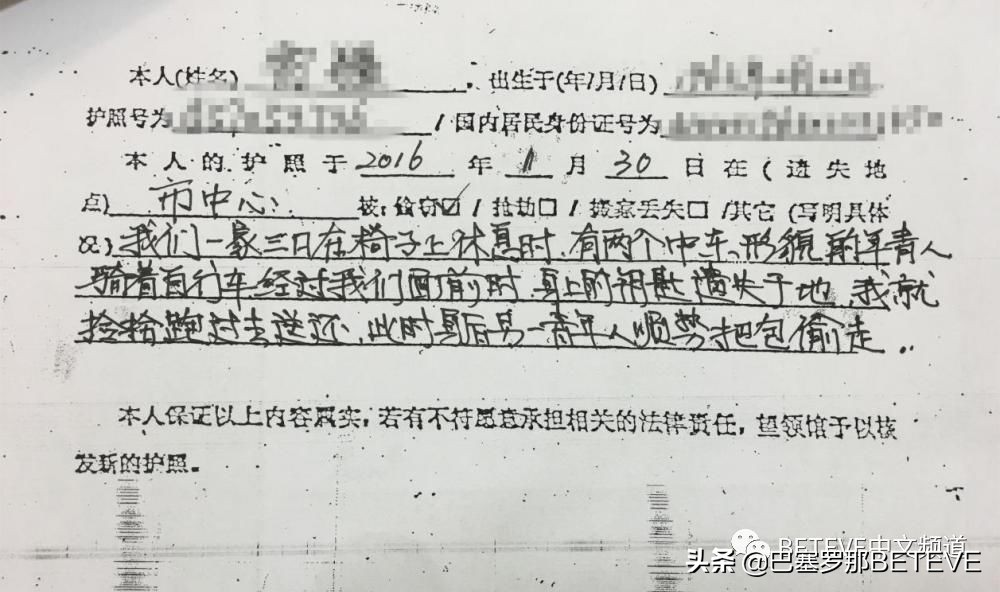 本人(姓名)　　　　. 出生于(年/月/日)
护照号为　　　　/ 国内居民身份证号为
本人的护照于 2016 年 1 月 30 日在 ( 遗失地
点) 市中心 被: 偷窃☑ / 抢劫口 / 搬家丢失口 /其它 (写明具体
况) 我们一家三口在椅子上休息时, 有两个中东形貌的年青人
骑着自行车经过我们面前时, 身上的钥匙遗失于地, 我就
捡拾跑过去送还, 此时身后另一青年人顺势把包偷走..
本人保证以上内容属实, 若有不符愿意承担相关的法律责任, 望领馆予以核
发新的护照。
BETEVE中文频道
头条@巴塞罗那BETEVE